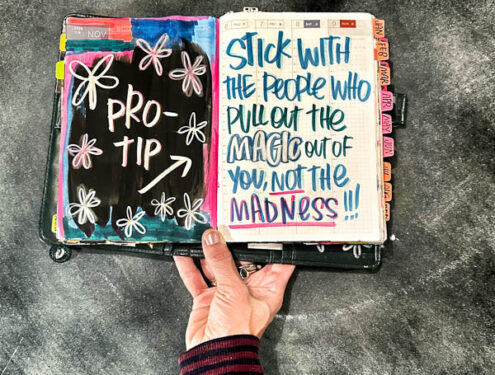 NOV
PRO-
TIP
6
7
8
9
STICK WITH
THE PEOPLE WHO
PULL OUT THE
MAGIC OUT OF
YOU, NOT THE
MADNESS!!!
JAN
FEB
MAR
APR
MAY
JUN